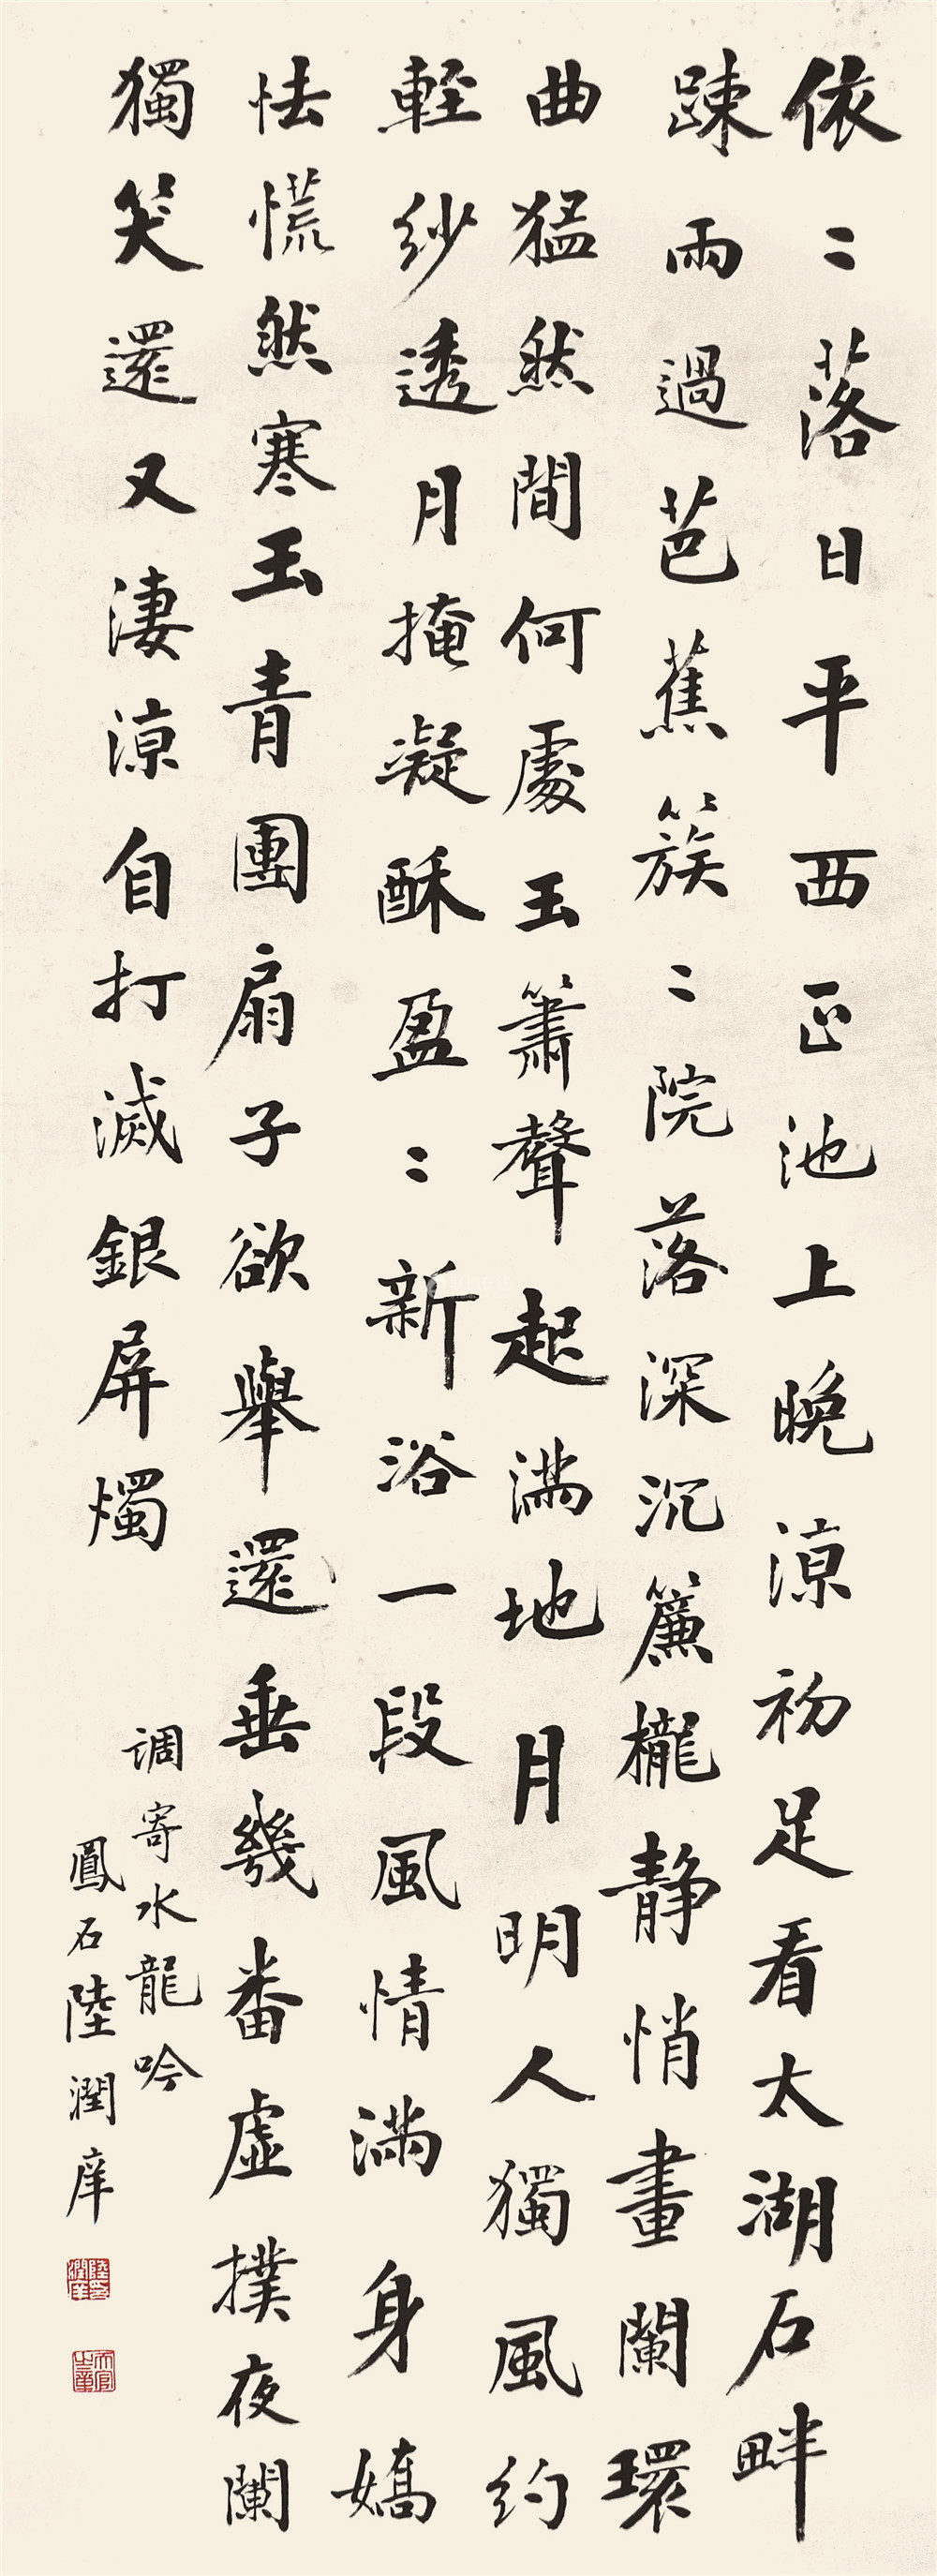 依〻落日平西正池上晚涼初足看太湖石畔
踈雨過芭蕉簇〻院落深沉簾櫳靜悄畫闌環
曲猛然間何處玉簫聲起滿地月明人獨風約
輕紗透月掩凝酥盈〻新浴一段風情滿身嬌
怯慌然寒玉青團扇子欲舉還垂幾番虛撲夜闌
獨笑還又淒涼自打滅銀屏燭
調寄水龍吟
鳳石陸潤庠